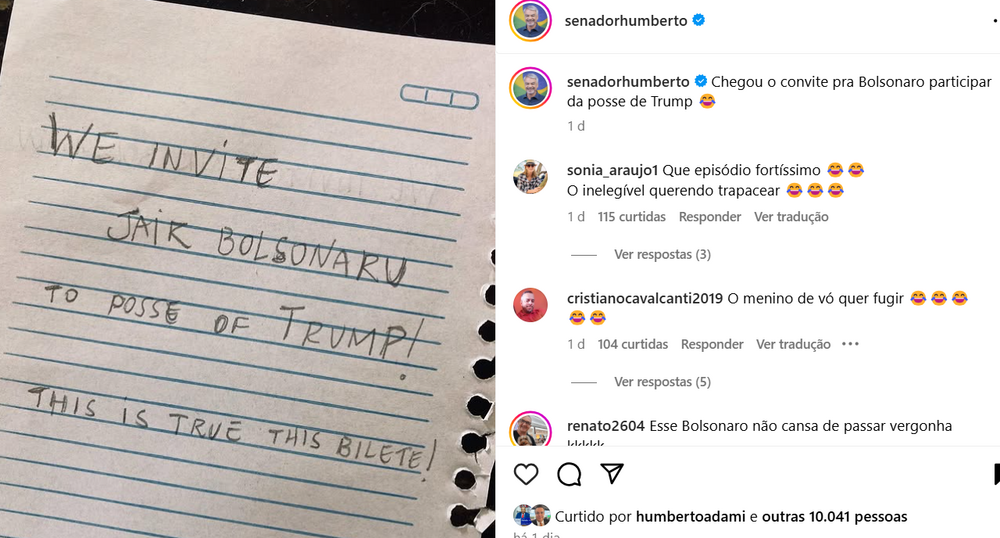 WE INVITE
JAIR BOLSONARU
TO POSSE OF TRUMP!
THIS IS TRUE THIS BILETE!
senadorhumberto
senadorhumberto Chegou o convite pra Bolsonaro participar
da posse de Trump 😂
1 d
sonia_araujo1 Que episódio fortíssimo 😂😂
O inelegível querendo trapacear 😂😂😂
1 d 115 curtidas Responder Ver tradução
Ver respostas (3)
cristianocavalcanti2019 O menino de vó quer fugir 😂😂😂
😂😂
1 d 104 curtidas Responder Ver tradução •••
Ver respostas (5)
renato2604 Esse Bolsonaro não cansa de passar vergonha
kkkkk
Curtido por humbertoadami e outras 10.041 pessoas
há 1 dia